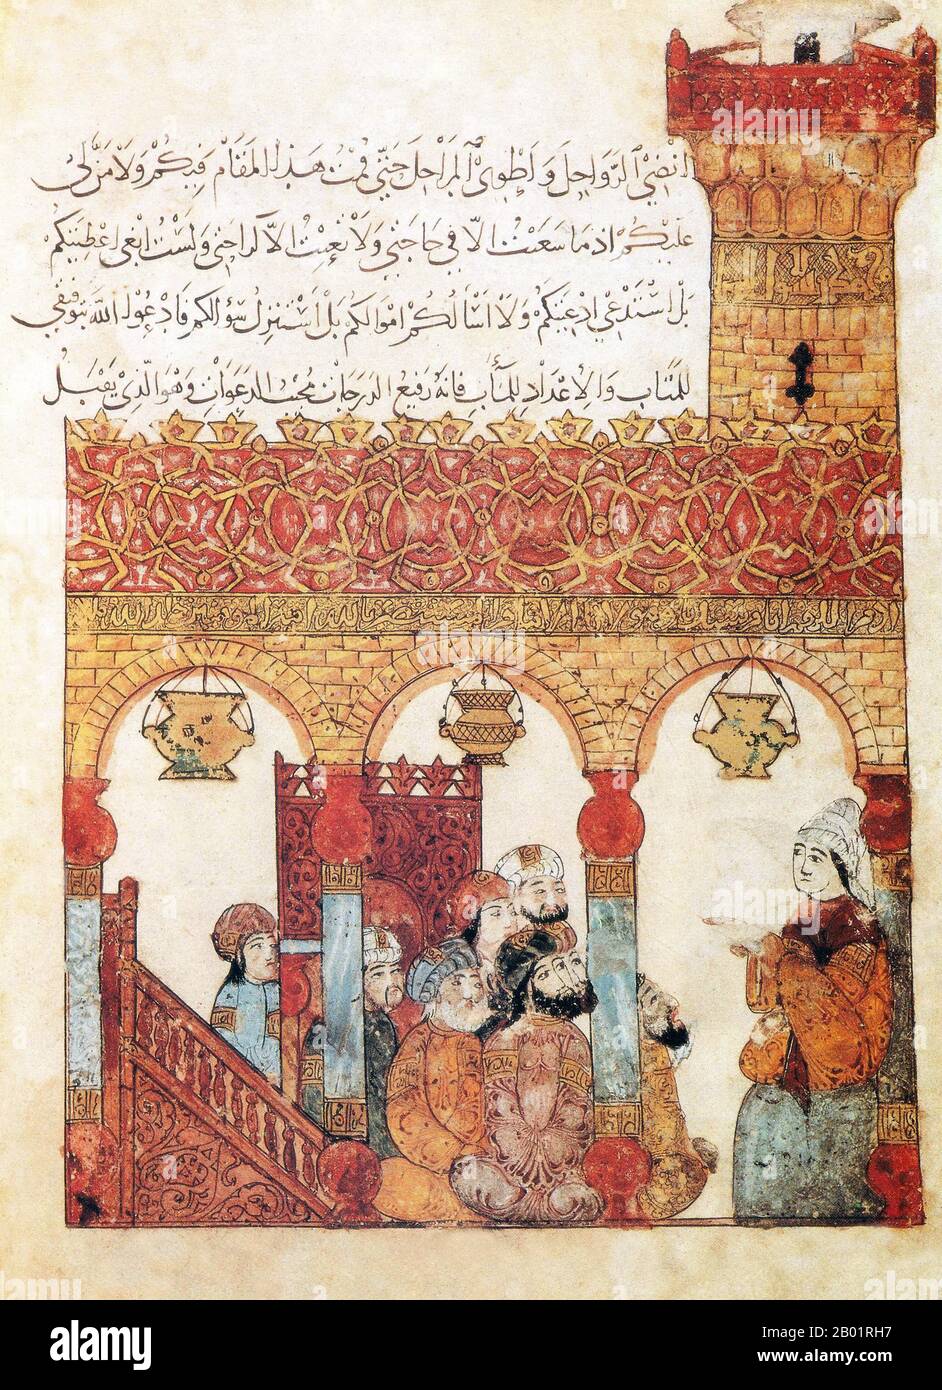 انْضِي الرَّوَاحِلَ وَاَطْوِي الْمَرَاحِلَ حَتَّى قُمْتُ هَذَا الْمَقَامَ فِيكُمْ وَلَا مَنَّ لِي
عَلَيْكُمْ اِذ مَا سَعَيْتُ الَّا فِي حَاجَتِي وَلَا تَعِبْتُ الَّا لِرَاحَتِي وَلَسْتُ ابْغِي اعْطِيَتَكُمْ
بَلْ اسْتَدْعِي ادْعِيَتَكُمْ وَلَا اسْأَلُكُمْ امْوَالَكُمْ بَل اسْتَنْزِلُ سُؤَالَكُم فَادْعُوا اللهَ بِتَوْفِيقِي
لِلْمَتَابِ وَالاِعْدَادِ لِلْمَآبِ فَاِنَّهُ رَفِيعُ الدَّرَجَاتِ مُجِيبُ الدَّعَوَاتِ وَهُوَ الَّذِي يَقْبَلُ
alamy
Image ID: 2B01RH7
www.alamy.com